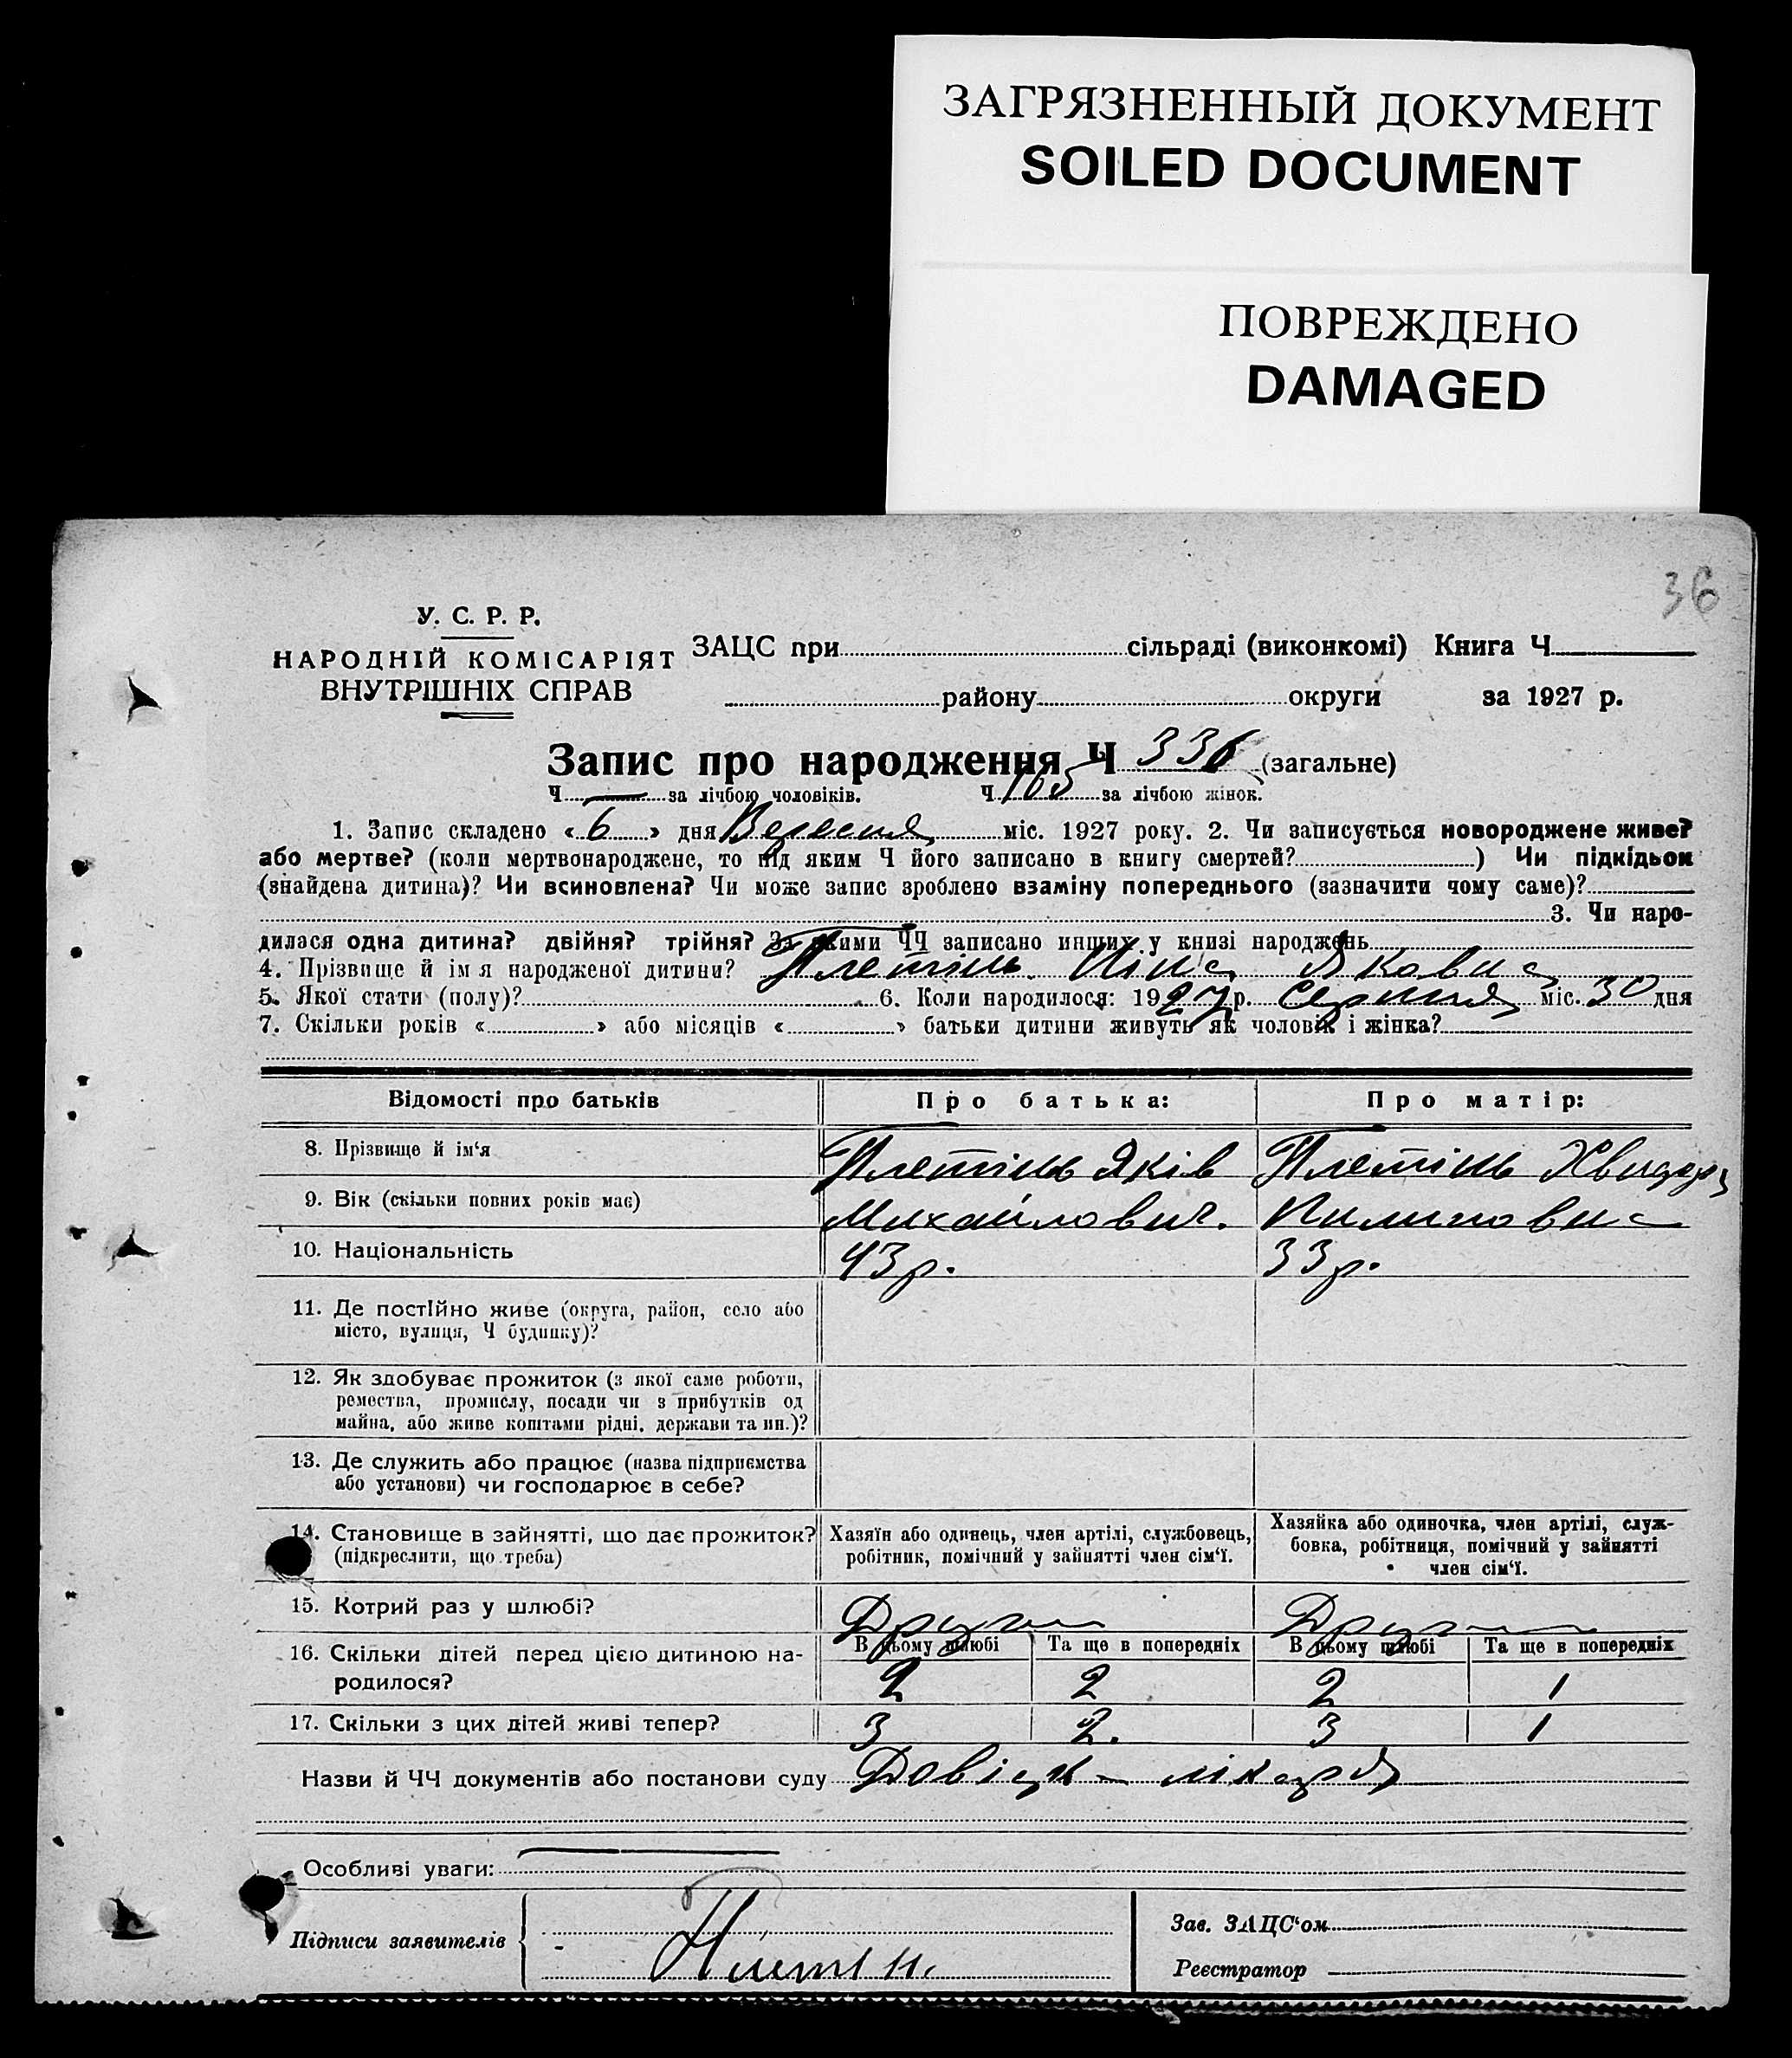 ЗАГРЯЗНЕННЫЙ ДОКУМЕНТ
SOILED DOCUMENT
ПОВРЕЖДЕНО
DAMAGED
36
У. С. Р. Р.
НАРОДНІЙ КОМІСАРІЯТ
ВНУТРІШНІХ СПРАВ
ЗАЦС при сільраді (виконкомі) Книга Ч
району округи за 1927 р.
Запис про народження Ч 336 (загальне)
Ч — за лічбою чоловіків. Ч 165 за лічбою жінок.
1. Запис складено « 6 » дня Вересня міс. 1927 року. 2. Чи записується новороджене живе?
або мертве? (коли мертвонароджене, то під яким Ч його записано в книгу смертей? ) Чи підкідьок
(знайдена дитина)? Чи всиновлена? Чи може запис зроблено взаміну попереднього (зазначити чому саме)?
3. Чи наро-
дилася одна дитина? двійня? трійня? За якими ЧЧ записано инших у книзі народжень
4. Прізвище й ім я народженої дитини? Плетінь Ніна Яковна
5. Якої стати (полу)? 6. Коли народилося: 1927 р. Серпня міс. 30 дня
7. Скільки років « » або місяців « » батьки дитини живуть як чоловік і жінка?
Відомості про батьків Про батька: Про матір:
8. Прізвище й ім'я Плетінь Яків Плетінь
9. Вік (скільки повних років має) Михайлович. Пилиповна
10. Національність 43 р. 33 р.
11. Де постІйно живе (округа, район, село або
місто, вулиця, Ч будинку)?
12. Як здобуває прожиток (з якої саме роботи,
ремества, промислу, посади чи з прибутків од
майна, або живе коштами рідні, держави та ин.)?
13. Де служить або працює (назва підприємства
або установи) чи господарює в себе?
14. Становище в зайнятті, що дає прожиток?
(підкреслити, що треба)
Хазяїн або одинець, член артілі, службовець,
робітник, помічний у зайнятті член сім'ї.
Хазяйка або одиночка, член артілі, служ-
бовка, робітниця, помічний у зайнятті
член сім'ї.
15. Котрий раз у шлюбі?
В цьому шлюбі Та ще в попередніх В цьому шлюбі Та ще в попередніх
16. Скільки дітей перед цією дитиною на-
родилося? 2 2 2 1
17. Скільки з цих дітей живі тепер? 3 2. 3 1
Назви й ЧЧ документів або постанови суду Довідк— лікаря
Особливі уваги:
Підписи заявителів
Зав. ЗАЦС'ом
Реєстратор